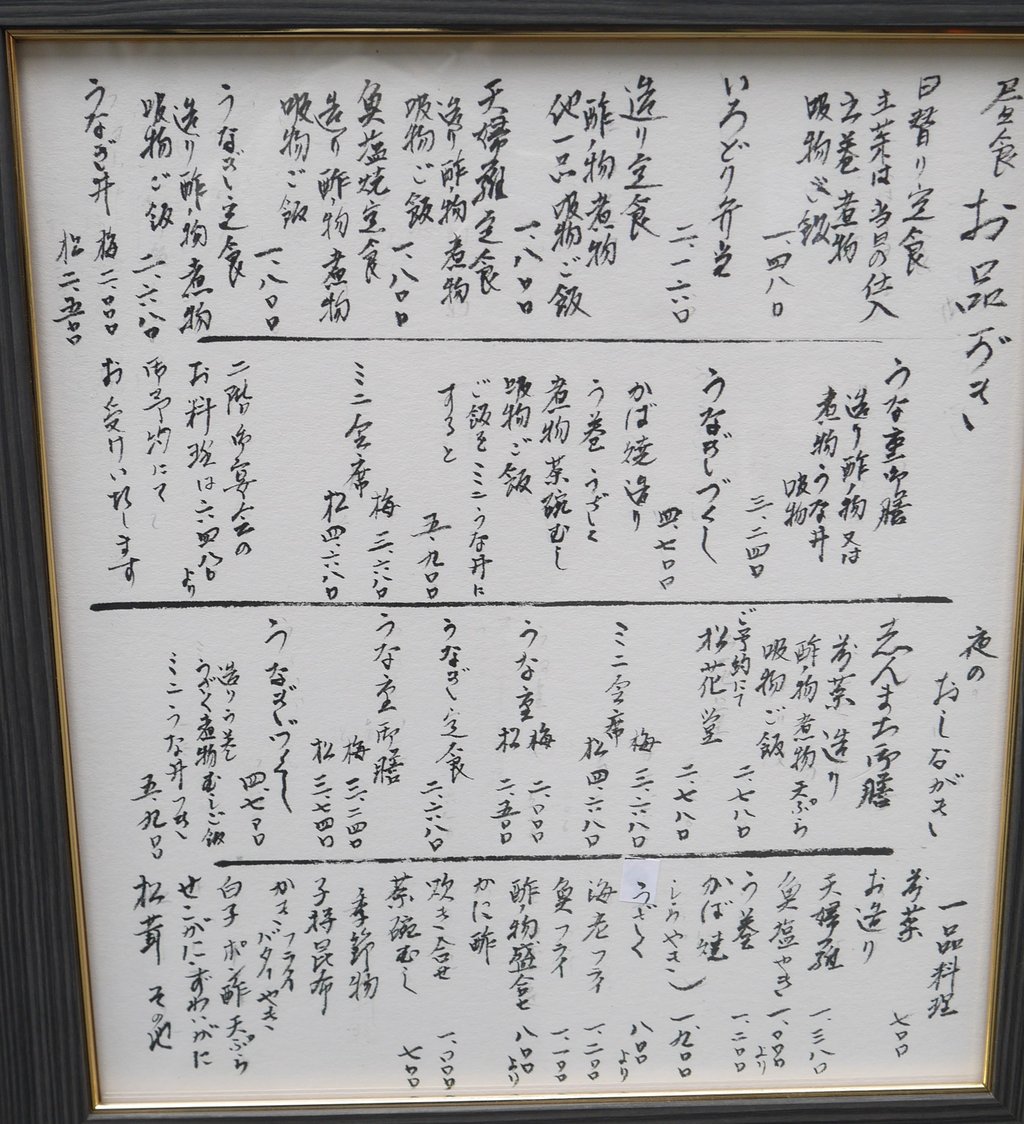 昼食 お品がき
日替り定食
主菜は当日の仕入
う巻 煮物
吸物ご飯
一、四八〇
いろどり弁当
二、一六〇
造り定食
酢ノ物煮物
他一品吸物ご飯
一、八〇〇
天婦羅定食
造り酢ノ物煮物
吸物ご飯
一、八〇〇
魚塩焼定食
造り酢ノ物煮物
吸物ご飯
一、八〇〇
うなぎ定食
造り酢ノ物煮物
吸物ご飯
二、六八〇
うなぎ丼 梅二、〇〇〇
松二、五〇〇
うな重御膳
造り酢ノ物又は
煮物うな丼
吸物
三、二四〇
うなぎづくし
四、七〇〇
かば焼造り
う巻うざく
煮物茶碗むし
吸物ご飯
ご飯をミニうな丼に
すると
五、九〇〇
ミニ会席
梅三、六八〇
松四、六八〇
二階御宴会の
お料理は六、四八〇より
御予約にて
お受けいたします
夜の
おしながき
志んまち御膳
前菜 造り
酢ノ物煮物天ぷら
吸物ご飯
二、七八〇
ご予約にて
松花堂
二、七八〇
ミニ会席
梅三、六八〇
松四、六八〇
うな重 梅二、〇〇〇
松二、五〇〇
うなぎ定食
二、六八〇
うな重御膳
梅三、二四〇
松三、七四〇
うなぎづくし
四、七〇〇
造りう巻
うざく煮物むしご飯
ミニうな丼つき
五、九〇〇
一品料理
前菜 七〇〇
お造り
天婦羅 一、三八〇
魚塩やき 一、〇〇〇より
う巻 一、二〇〇
かば焼
(しらやき) 一、九〇〇
うざく 八〇〇より
海老フライ 一、二〇〇
魚フライ 一、一〇〇
酢ノ物盛合せ 八〇〇より
かに酢
炊き合せ 一、〇〇〇
茶碗むし 七〇〇
季節物
子持昆布
かきフライ
バターやき
白子 ポン酢 天ぷら
せこがにずわいがに
松茸 その他